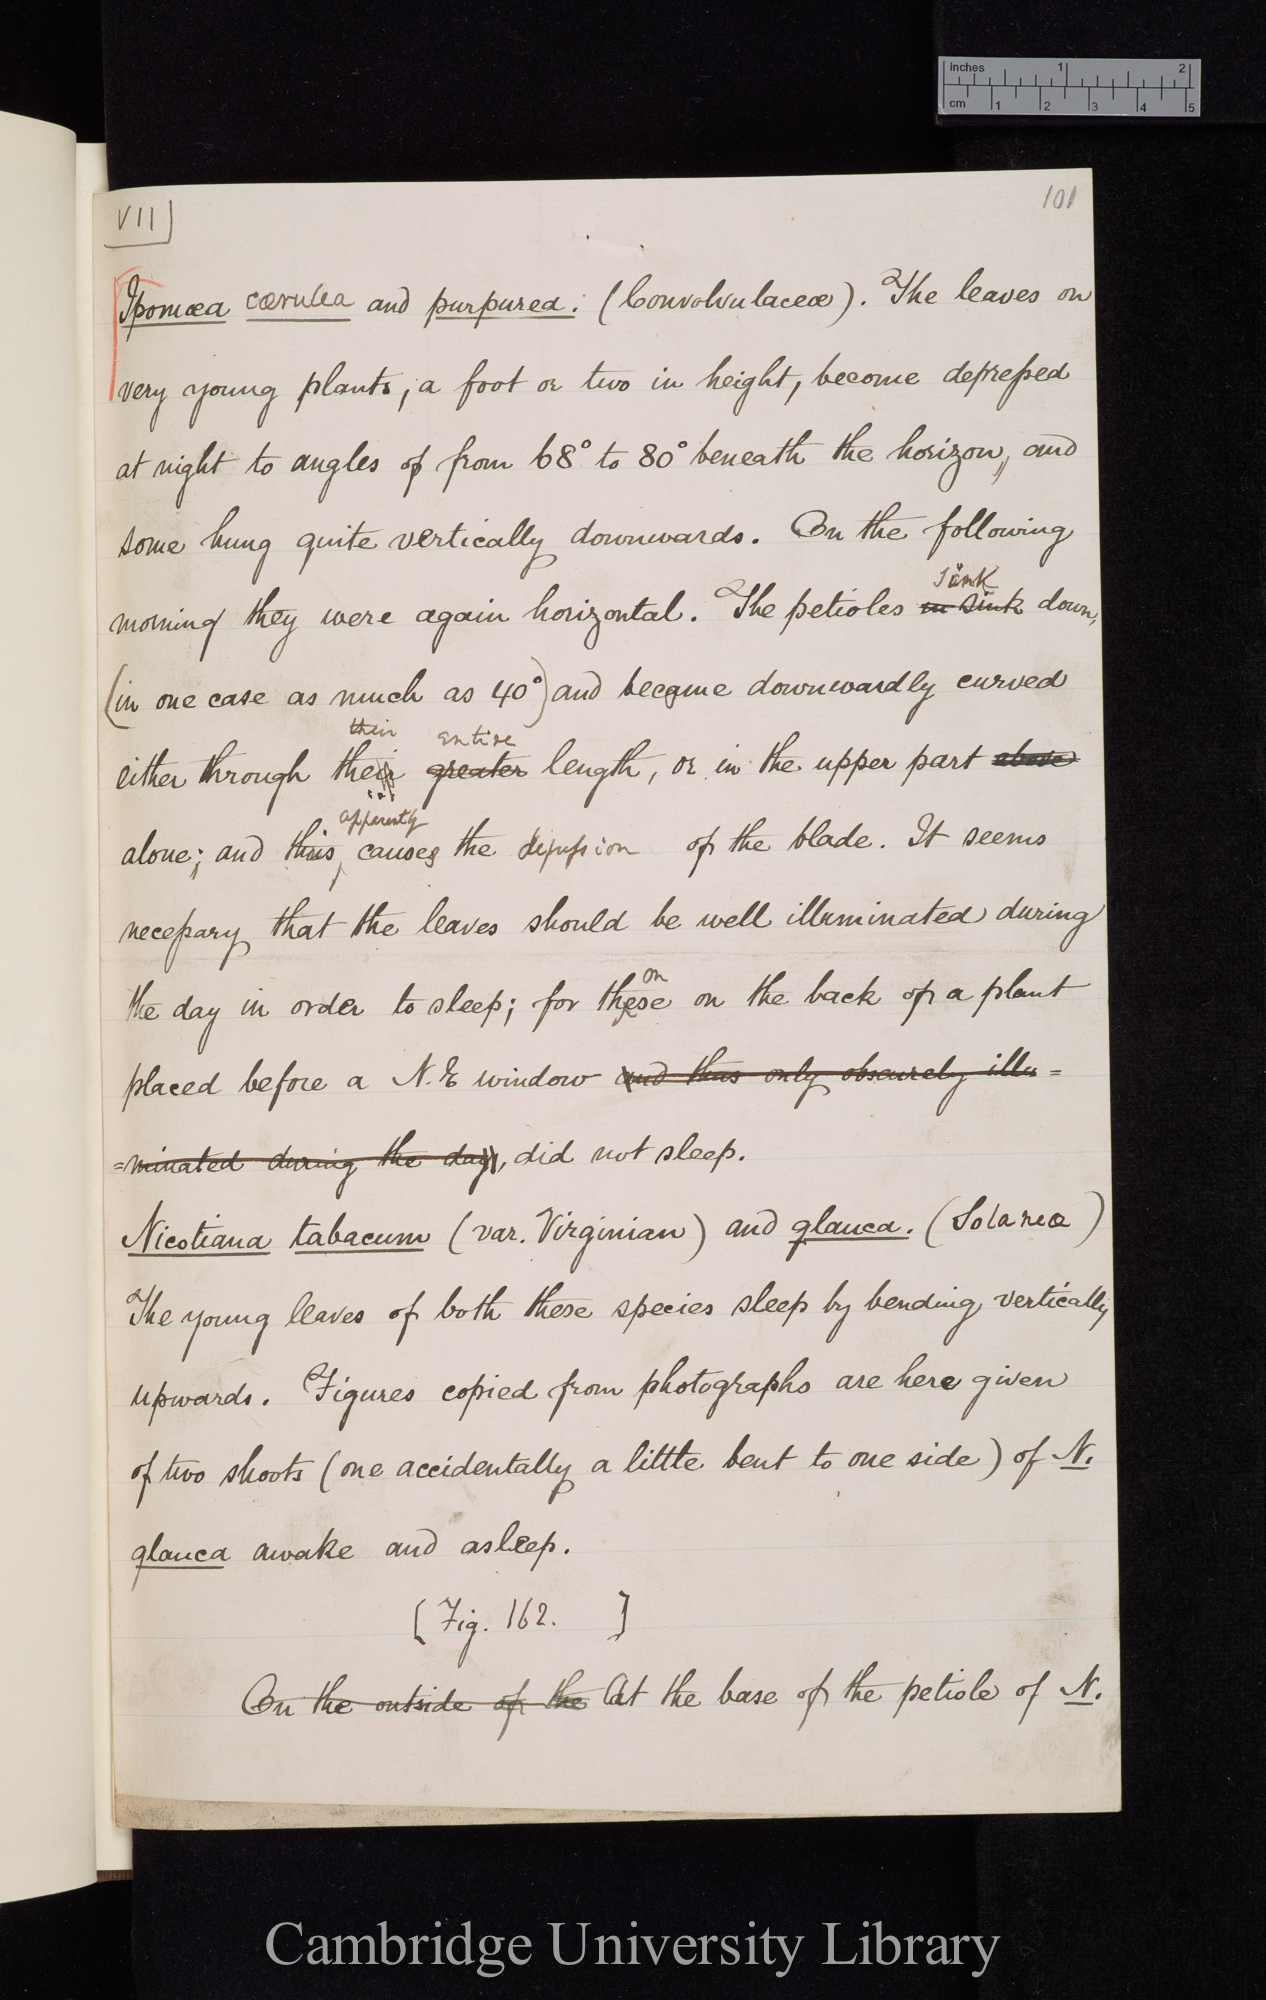 inches 1 2
cm 1 2 3 4 5
VII
101
Ipomœa cœrulea and purpurea. (Convolvulaceæ). The leaves on
very young plants, a foot or two in height, become depressed
at night to angles of from 68° to 80° beneath the horizon, and
some hung quite vertically downwards. On the following
sink
morning they were again horizontal. The petioles sink down,
(in one case as much as 40°) and became downwardly curved
their entire
either through their greater length, or in the upper part above
apparently
alone; and this, causes the depression of the blade. It seems
necessary that the leaves should be well illuminated during
on
the day in order to sleep; for these on the back of a plant
placed before a N.E window and thus only obscurely illu=
=minated during the day, did not sleep.
Nicotiana tabacum (var. Virginian) and glauca. (Solaneæ)
The young leaves of both these species sleep by bending vertically
upwards. Figures copied from photographs are here given
of two shoots (one accidentally a little bent to one side) of N.
glauca awake and asleep.
[Fig. 162. ]
On the outside of the At the base of the petiole of N.
Cambridge University Library